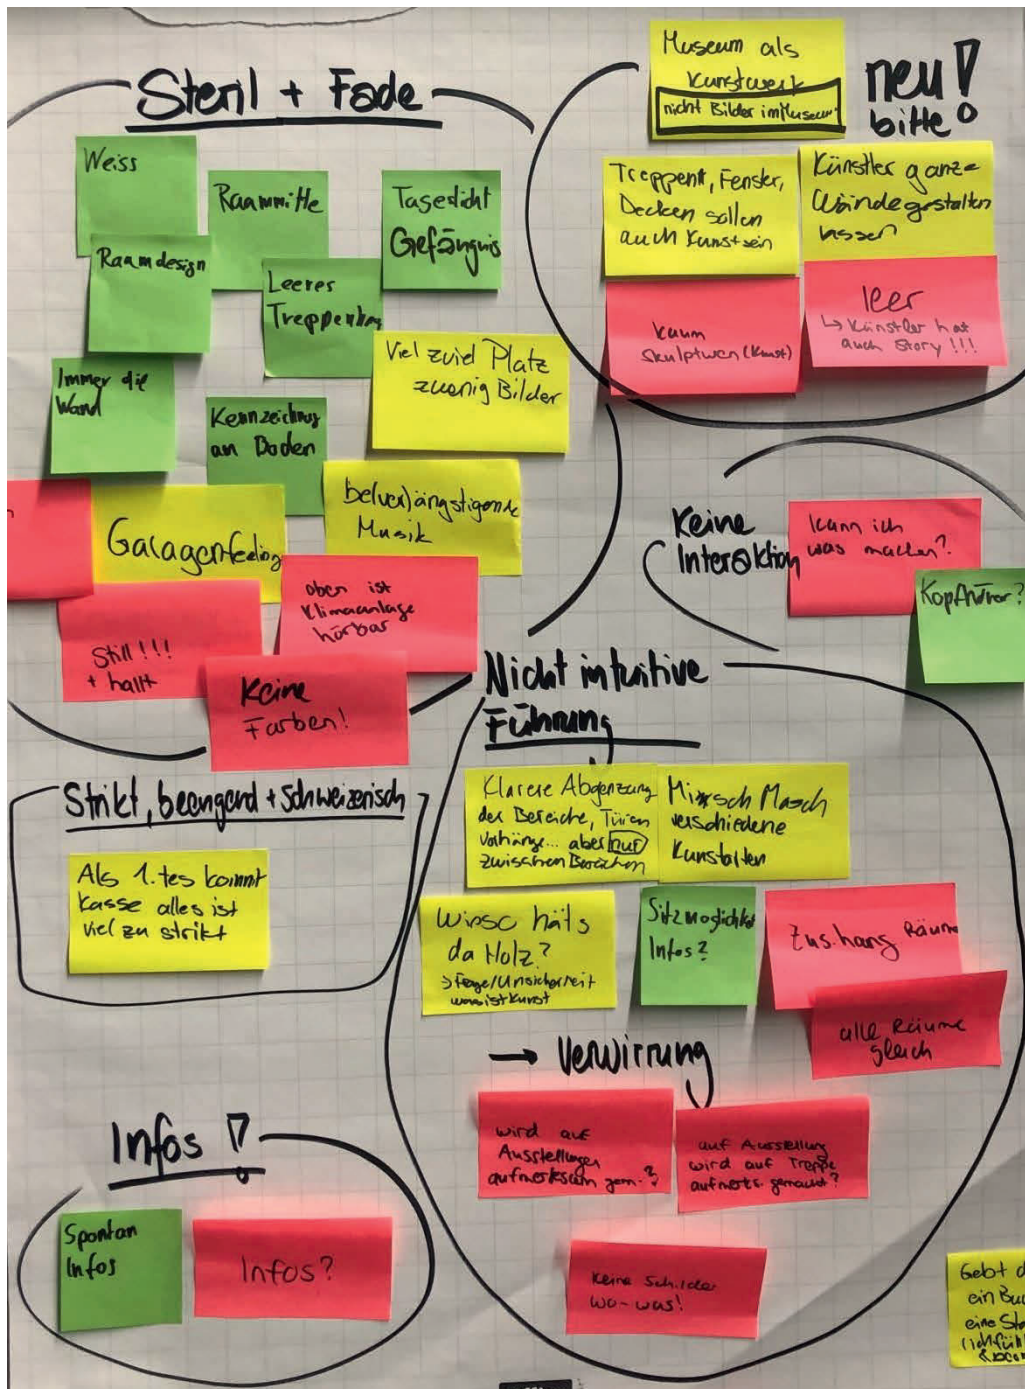 Steril + Fade
Weiss
Raummitte
Tageslicht
Gefängnis
Raumdesign
Leeres
Immer die
Wand
Kennzeichnung
am Boden
Viel zuviel Platz
zuwenig Bilder
be(ver)ängstigende
Musik
Garagenfeeling
oben ist
Klimaanlage
hörbar
Still!!!
+ hallt
Keine
Farben!
neu!
bitte!
Museum als
Kunstwerk
nicht Bilder im Museum
Treppen, Fenster,
Decken sollen
auch Kunst sein
Künstler ganze
Wände gestalten
lassen
kaum
Skulpturen (Kunst)
leer
↳ Künstler hat
auch Story!!!
Keine
Interaktion
Kann ich
was machen?
Kopfhörer?
Nicht intuitive
Führung
Klarere Abgenzung
der Bereiche, Türen
Vorhänge... aber nur
zwischen Bereichen
Misch Masch
verschiedene
Kunstarten
wieso häts
da Holz?
→ Frage/Unsicherheit
was ist Kunst
Sitzmöglichkeit
Infos?
Zus.hang Räume
alle Räume
gleich
→ Verwirrung
wird auf
Ausstellungen
aufmerksam gem.?
auf Ausstellung
wird auf Treppe
aufmerks. gemacht?
Keine Schilder
wo-was!
Strikt, beengend + Schweizerisch
Als 1.tes kommt
Kasse alles ist
viel zu strikt
Infos!
Spontan
Infos
Infos?
Gebt d
ein Bu
eine Sta